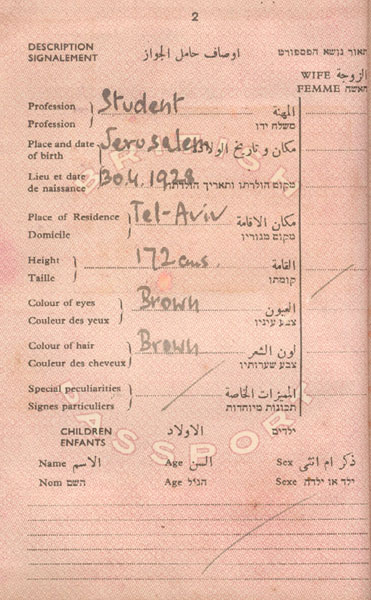 2
DESCRIPTION اوصاف حامل الجواز תאור נושא הפספורט
SIGNALEMENT
WIFE الزوجة
FEMME האשה
Profession Student المهنة
Profession משלח ידו
Place and date of birth Jerusalem مكان و تاريخ الولادة
Lieu et date de naissance 30.4.1928 מקום הולדתו ותאריך הולדתו
Place of Residence Tel-Aviv مكان الاقامة
Domicile מקום מגוריו
Height 172 cms. القامة
Taille קומתו
Colour of eyes Brown العيون
Couleur des yeux צבע עיניו
Colour of hair Brown لون الشعر
Couleur des cheveux צבע שערותיו
Special peculiarities المميزات الخاصة
Signes particuliers תכונות מיוחדות
CHILDREN الاولاد ילדים
ENFANTS
Name الاسم Age السن Sex ذكر ام انثى
Nom השם Age הגיל Sexe ילד או ילדה
BRITISH
PASSPORT